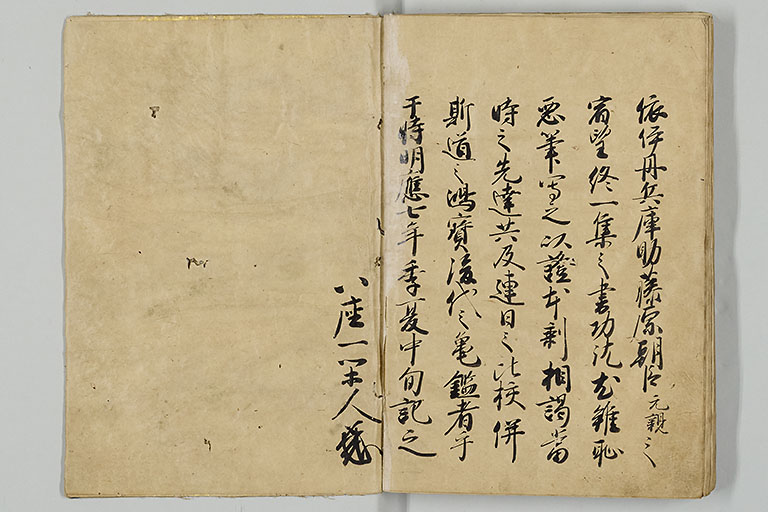 依伊丹兵庫助藤原朝臣元親之
宿望終一集之書功訖尤雖恥
悪筆写之以證本剰相謁當
時之先達共及連日之比校併
斯道之鴻寳後代之亀鑑者乎
于時明應七年季夏中旬記之
八座一閑人